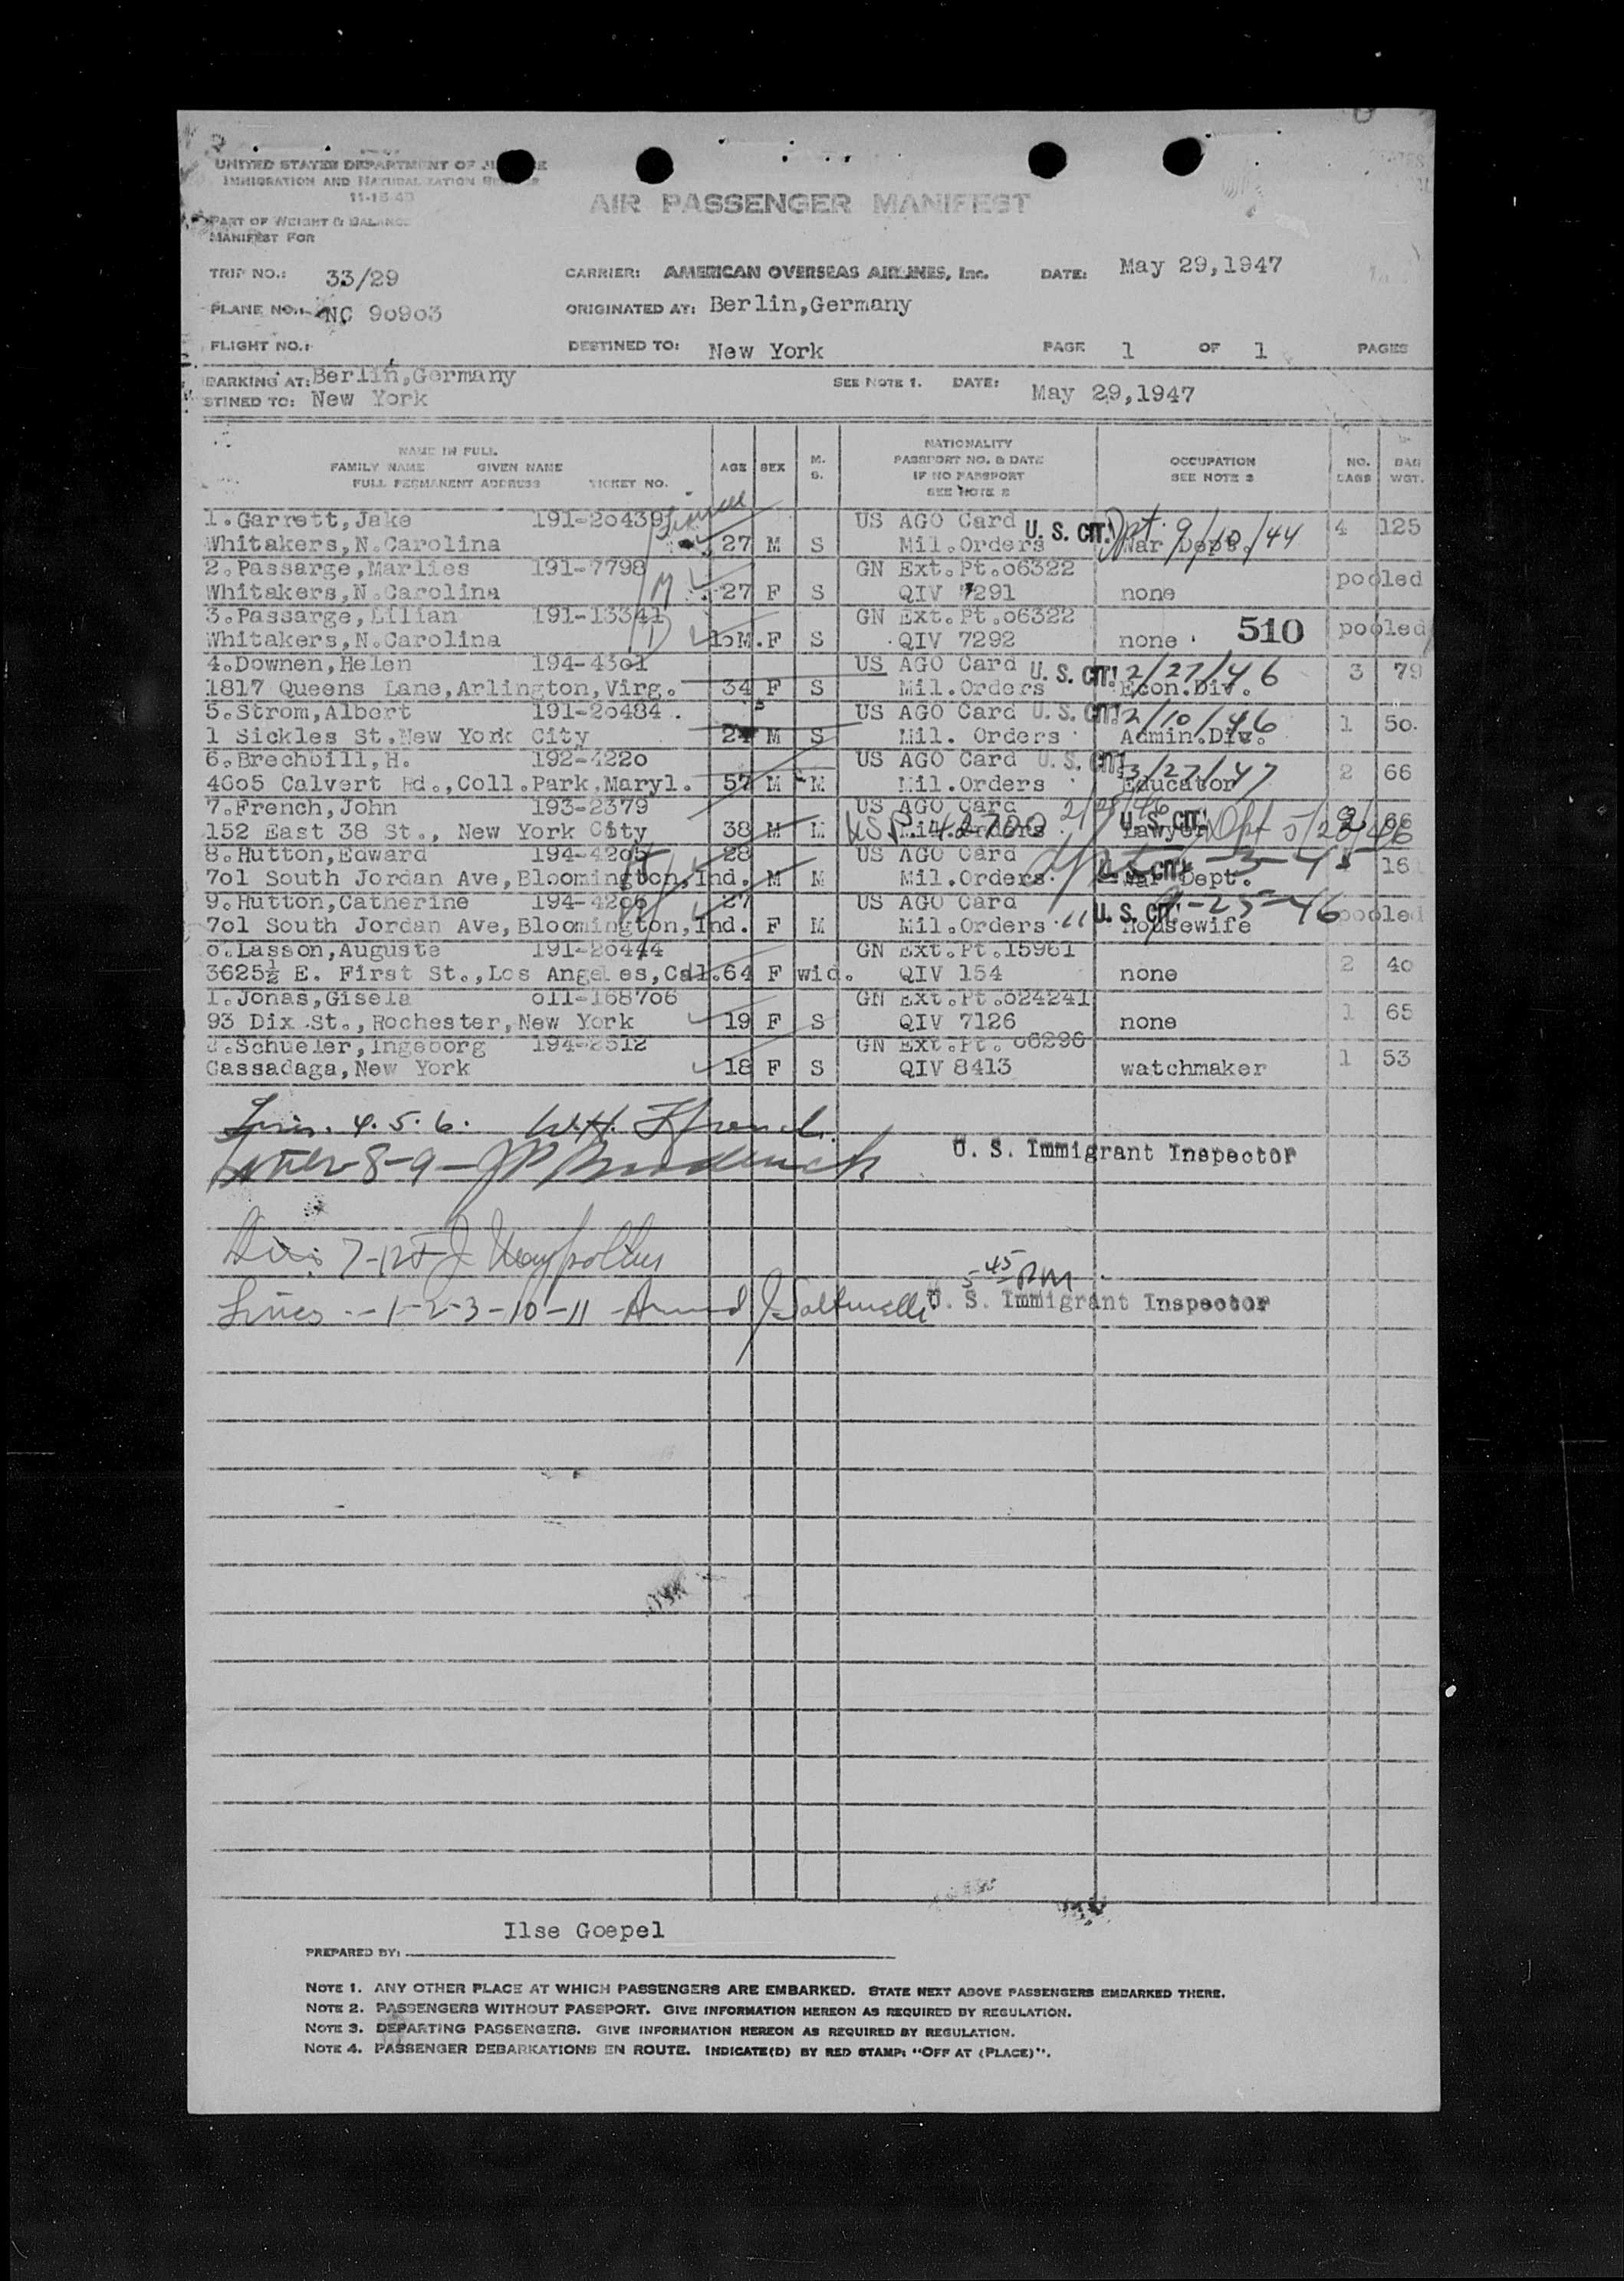 UNITED STATES DEPARTMENT OF
IMMIGRATION AND NATURALIZATION
11-15-43
AIR PASSENGER MANIFEST
PART OF WEIGHT & BALANCE
MANIFEST FOR
TRIP NO.: 33/29 CARRIER: AMERICAN OVERSEAS AIRLINES, Inc. DATE: May 29,1947
PLANE NO.: NC 90903 ORIGINATED AT: Berlin,Germany
FLIGHT NO.: DESTINED TO: New York PAGE 1 OF 1 PAGES
BARKING AT: Berlin,Germany SEE NOTE 1. DATE: May 29,1947
STINED TO: New York
NAME IN FULL
FAMILY NAME GIVEN NAME
FULL PERMANENT ADDRESS TICKET NO. AGE SEX M. S. NATIONALITY PASSPORT NO. & DATE IF NO PASSPORT SEE NOTE 2 OCCUPATION SEE NOTE 3 NO. BAGS BAG WGT.
1.Garrett,Jake 191-20439 US AGO Card U. S. CIT. Dpt. 9/10/44 4 125
Whitakers,N.Carolina 27 M S Mil.Orders War Dept.
2.Passarge,Marlies 191-7798 GN Ext.Pt.o6322 pooled
Whitakers,N.Carolina 27 F S QIV 7291 none
3.Passarge,Lilian 191-13341 GN Ext.Pt.o6322 510 pooled
Whitakers,N.Carolina 10M. F S QIV 7292 none
4.Downen,Helen 194-4301 US AGO Card U. S. CIT. 2/27/46 3 79
1817 Queens Lane,Arlington,Virg. 34 F S Mil.Orders Econ.Div.
5.Strom,Albert 191-20484 US AGO Card U. S. CIT. 2/10/46 1 50.
1 Sickles St.New York City M S Mil. Orders Admin.Div.
6.Brechbill,H. 192-4220 US AGO Card U. S. CIT. 3/27/47 2 66
4605 Calvert Rd.,Coll.Park,Maryl. 57 M M Mil.Orders Educator
7.French,John 193-2379 US AGO Card U. S. CIT. 66
152 East 38 St., New York City 38 M M Mil.Orders Lawyer
8.Hutton,Edward 194-4205 28 US AGO Card U. S. CIT. 16
701 South Jordan Ave,Bloomington,Ind. M M Mil.Orders War Dept.
9.Hutton,Catherine 194-4206 27 US AGO Card U. S. CIT. pooled
701 South Jordan Ave,Bloomington,Ind. F M Mil.Orders Housewife
0.Lasson,Auguste 191-20444 GN Ext.Pt.15961 2 40
3625½ E. First St.,Los Angeles,Cal. 64 F wid. QIV 154 none
1.Jonas,Gisela 011-168706 GN Ext.Pt.o24241 1 65
93 Dix St.,Rochester,New York 19 F S QIV 7126 none
.Schueler,Ingeborg 194-2512 GN Ext.Pt. o6296 1 53
Cassadaga,New York 18 F S QIV 8413 watchmaker
4.5.6. W.H.
8-9- U. S. Immigrant Inspector
5-45 PM
Lines --1-2-3-10-11 U. S. Immigrant Inspector
Ilse Goepel
PREPARED BY:
NOTE 1. ANY OTHER PLACE AT WHICH PASSENGERS ARE EMBARKED. STATE NEXT ABOVE PASSENGERS EMBARKED THERE.
NOTE 2. PASSENGERS WITHOUT PASSPORT. GIVE INFORMATION HEREON AS REQUIRED BY REGULATION.
NOTE 3. DEPARTING PASSENGERS. GIVE INFORMATION HEREON AS REQUIRED BY REGULATION.
NOTE 4. PASSENGER DEBARKATIONS EN ROUTE. INDICATE(D) BY RED STAMP: "OFF AT (PLACE)".